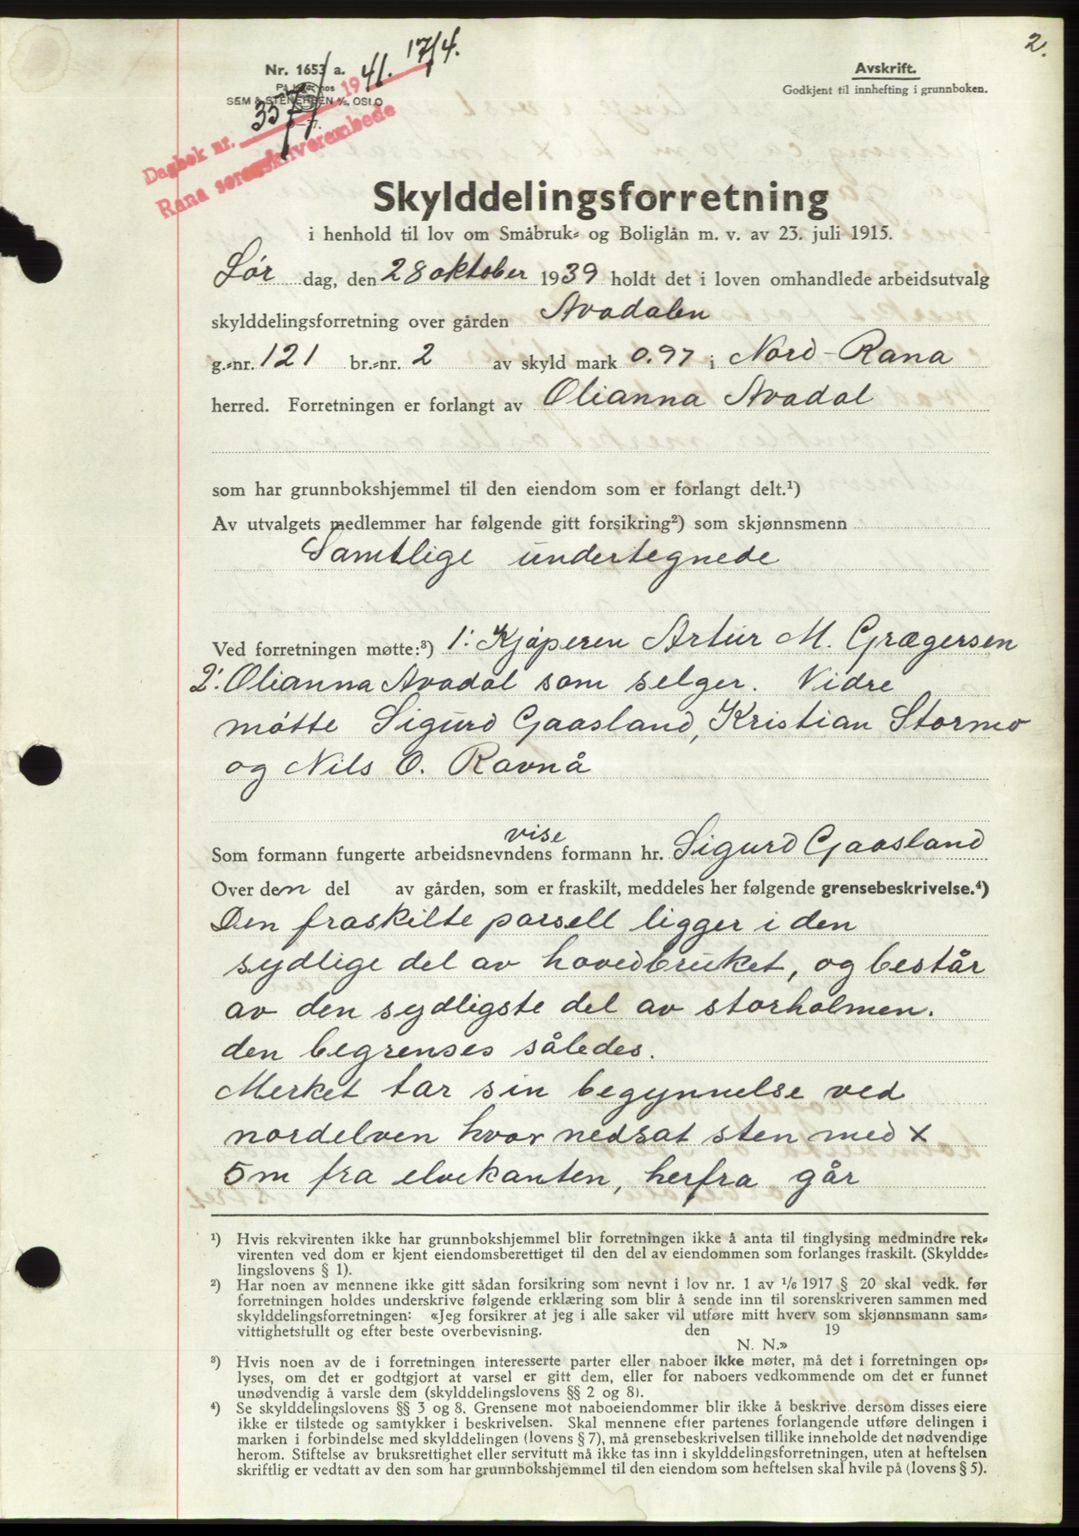 2.
Nr. 1653 a.
SEM & STENERSEN A/S, OSLO
Avskrift.
Godkjent til innhefting i grunnboken.
Dagbok nr. 357/ 1941. 17/4.
Rana sorenskriverembede
Skylddelingsforretning
i henhold til lov om Småbruk- og Boliglån m. v. av 23. juli 1915.
Lør dag, den 28 oktober 1939 holdt det i loven omhandlede arbeidsutvalg
skylddelingsforretning over gården Avadalen
g.-nr. 121 br.-nr. 2 av skyld mark 0.97 i Nord-Rana
herred. Forretningen er forlangt av Olianna Avadal
som har grunnbokshjemmel til den eiendom som er forlangt delt.¹)
Av utvalgets medlemmer har følgende gitt forsikring²) som skjønnsmenn
Samtlige undertegnede
Ved forretningen møtte:³) 1: Kjøperen Artur M. Grægersen
2: Olianna Avadal som selger. Vidre
møtte Sigurd Gaasland, Kristian Stormo
og Nils O. Ravnå
Som formann fungerte arbeidsnevndens vise formann hr. Sigurd Gaasland
Over den del av gården, som er fraskilt, meddeles her følgende grensebeskrivelse.⁴)
Den fraskilte parsell ligger i den
sydlige del av hovedbruket, og består
av den sydligste del av storholmen.
den begrenses således.
Merket tar sin begynnelse ved
nordelven hvor nedsat sten med x
5 m fra elvekanten, herfra går
¹) Hvis rekvirenten ikke har grunnbokshjemmel blir forretningen ikke å anta til tinglysing medmindre rek-
virenten ved dom er kjent eiendomsberettiget til den del av eiendommen som forlanges fraskilt. (Skyldde-
lingslovens § 1).
²) Har noen av mennene ikke gitt sådan forsikring som nevnt i lov nr. 1 av 1/6 1917 § 20 skal vedk. før
forretningen holdes underskrive følgende erklæring som blir å sende inn til sorenskriveren sammen med
skylddelingsforretningen: «Jeg forsikrer at jeg i alle saker vil utføre mitt hverv som skjønnsmann sam-
vittighetsfullt og efter beste overbevisning. den 19
N. N.»
³) Hvis noen av de i forretningen interesserte parter eller naboer ikke møter, må det i forretningen op-
lyses, om det er godtgjort at varsel er gitt dem, eller for naboers vedkommende om det er funnet
unødvendig å varsle dem (skylddelingslovens §§ 2 og 8).
⁴) Se skylddelingslovens §§ 3 og 8. Grensene mot naboeiendommer blir ikke å beskrive dersom disses eiere
ikke er tilstede og samtykker i beskrivelsen. Skal mennene efter partenes forlangende utføre delingen i
marken i forbindelse med skylddelingen (lovens § 7), må grensebeskrivelsen tillike inneholde det nødvendige
herom. Stiftelse av bruksrettighet eller servitutt må ikke tas inn i skylddelingsforretningen, uten at heftelsen
skriftlig er vedtatt av den som har grunnbokshjemmel til den eiendom som heftelsen skal hvile på (lovens § 5).